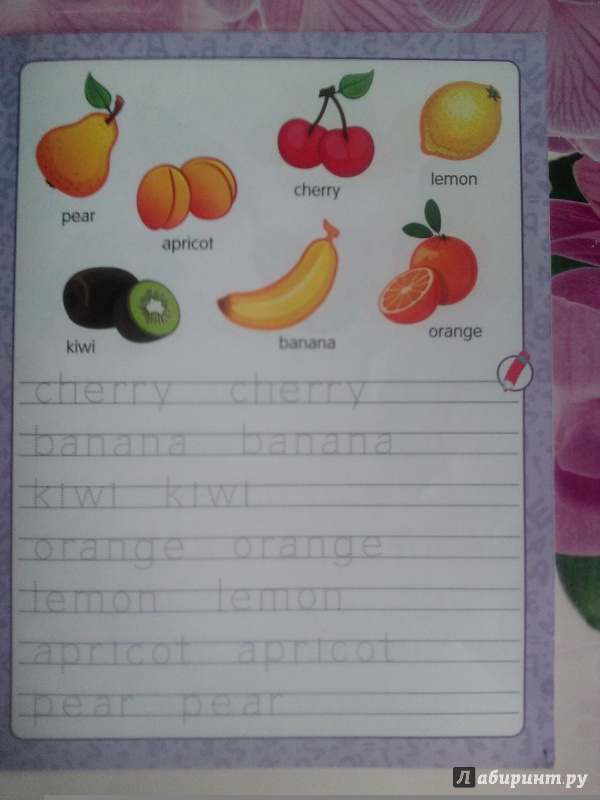 pear
apricot
cherry
lemon
kiwi
banana
orange
cherry cherry
banana banana
kiwi kiwi
orange orange
lemon lemon
apricot apricot
pear pear
Лабиринт.ру